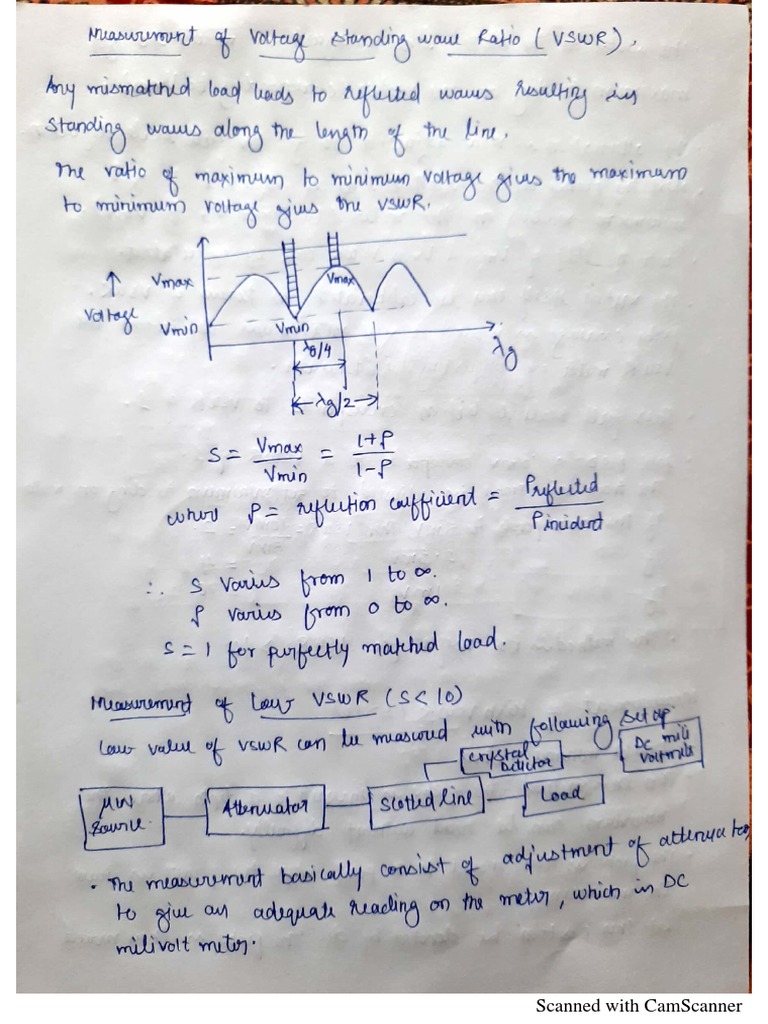 Measurement of Voltage Standing wave Ratio (VSWR).
Any mismatched load leads to reflected waves resulting in
Standing waves along the length of the line.
The ratio of maximum to minimum voltage gives the maximum
to minimum voltage gives the VSWR.
Vmax
Vmax
↑
Voltage
Vmin
Vmin
λg/4
λg
λg/2
S = Vmax/Vmin = 1+ρ/1-ρ
where ρ = reflection coefficient = Preflected/Pincident
∴ S varies from 1 to ∞.
ρ varies from 0 to ∞.
S = 1 for perfectly matched load.
Measurement of Low VSWR (S < 10)
Low value of VSWR can be measured with following set up
Crystal
Detector
DC mili
Voltmeter
μW
Source
Attenuator
Slotted line
Load
• The measurement basically consist of adjustment of attenuator
to give an adequate reading on the meter, which is DC
milivolt meter.
Scanned with CamScanner